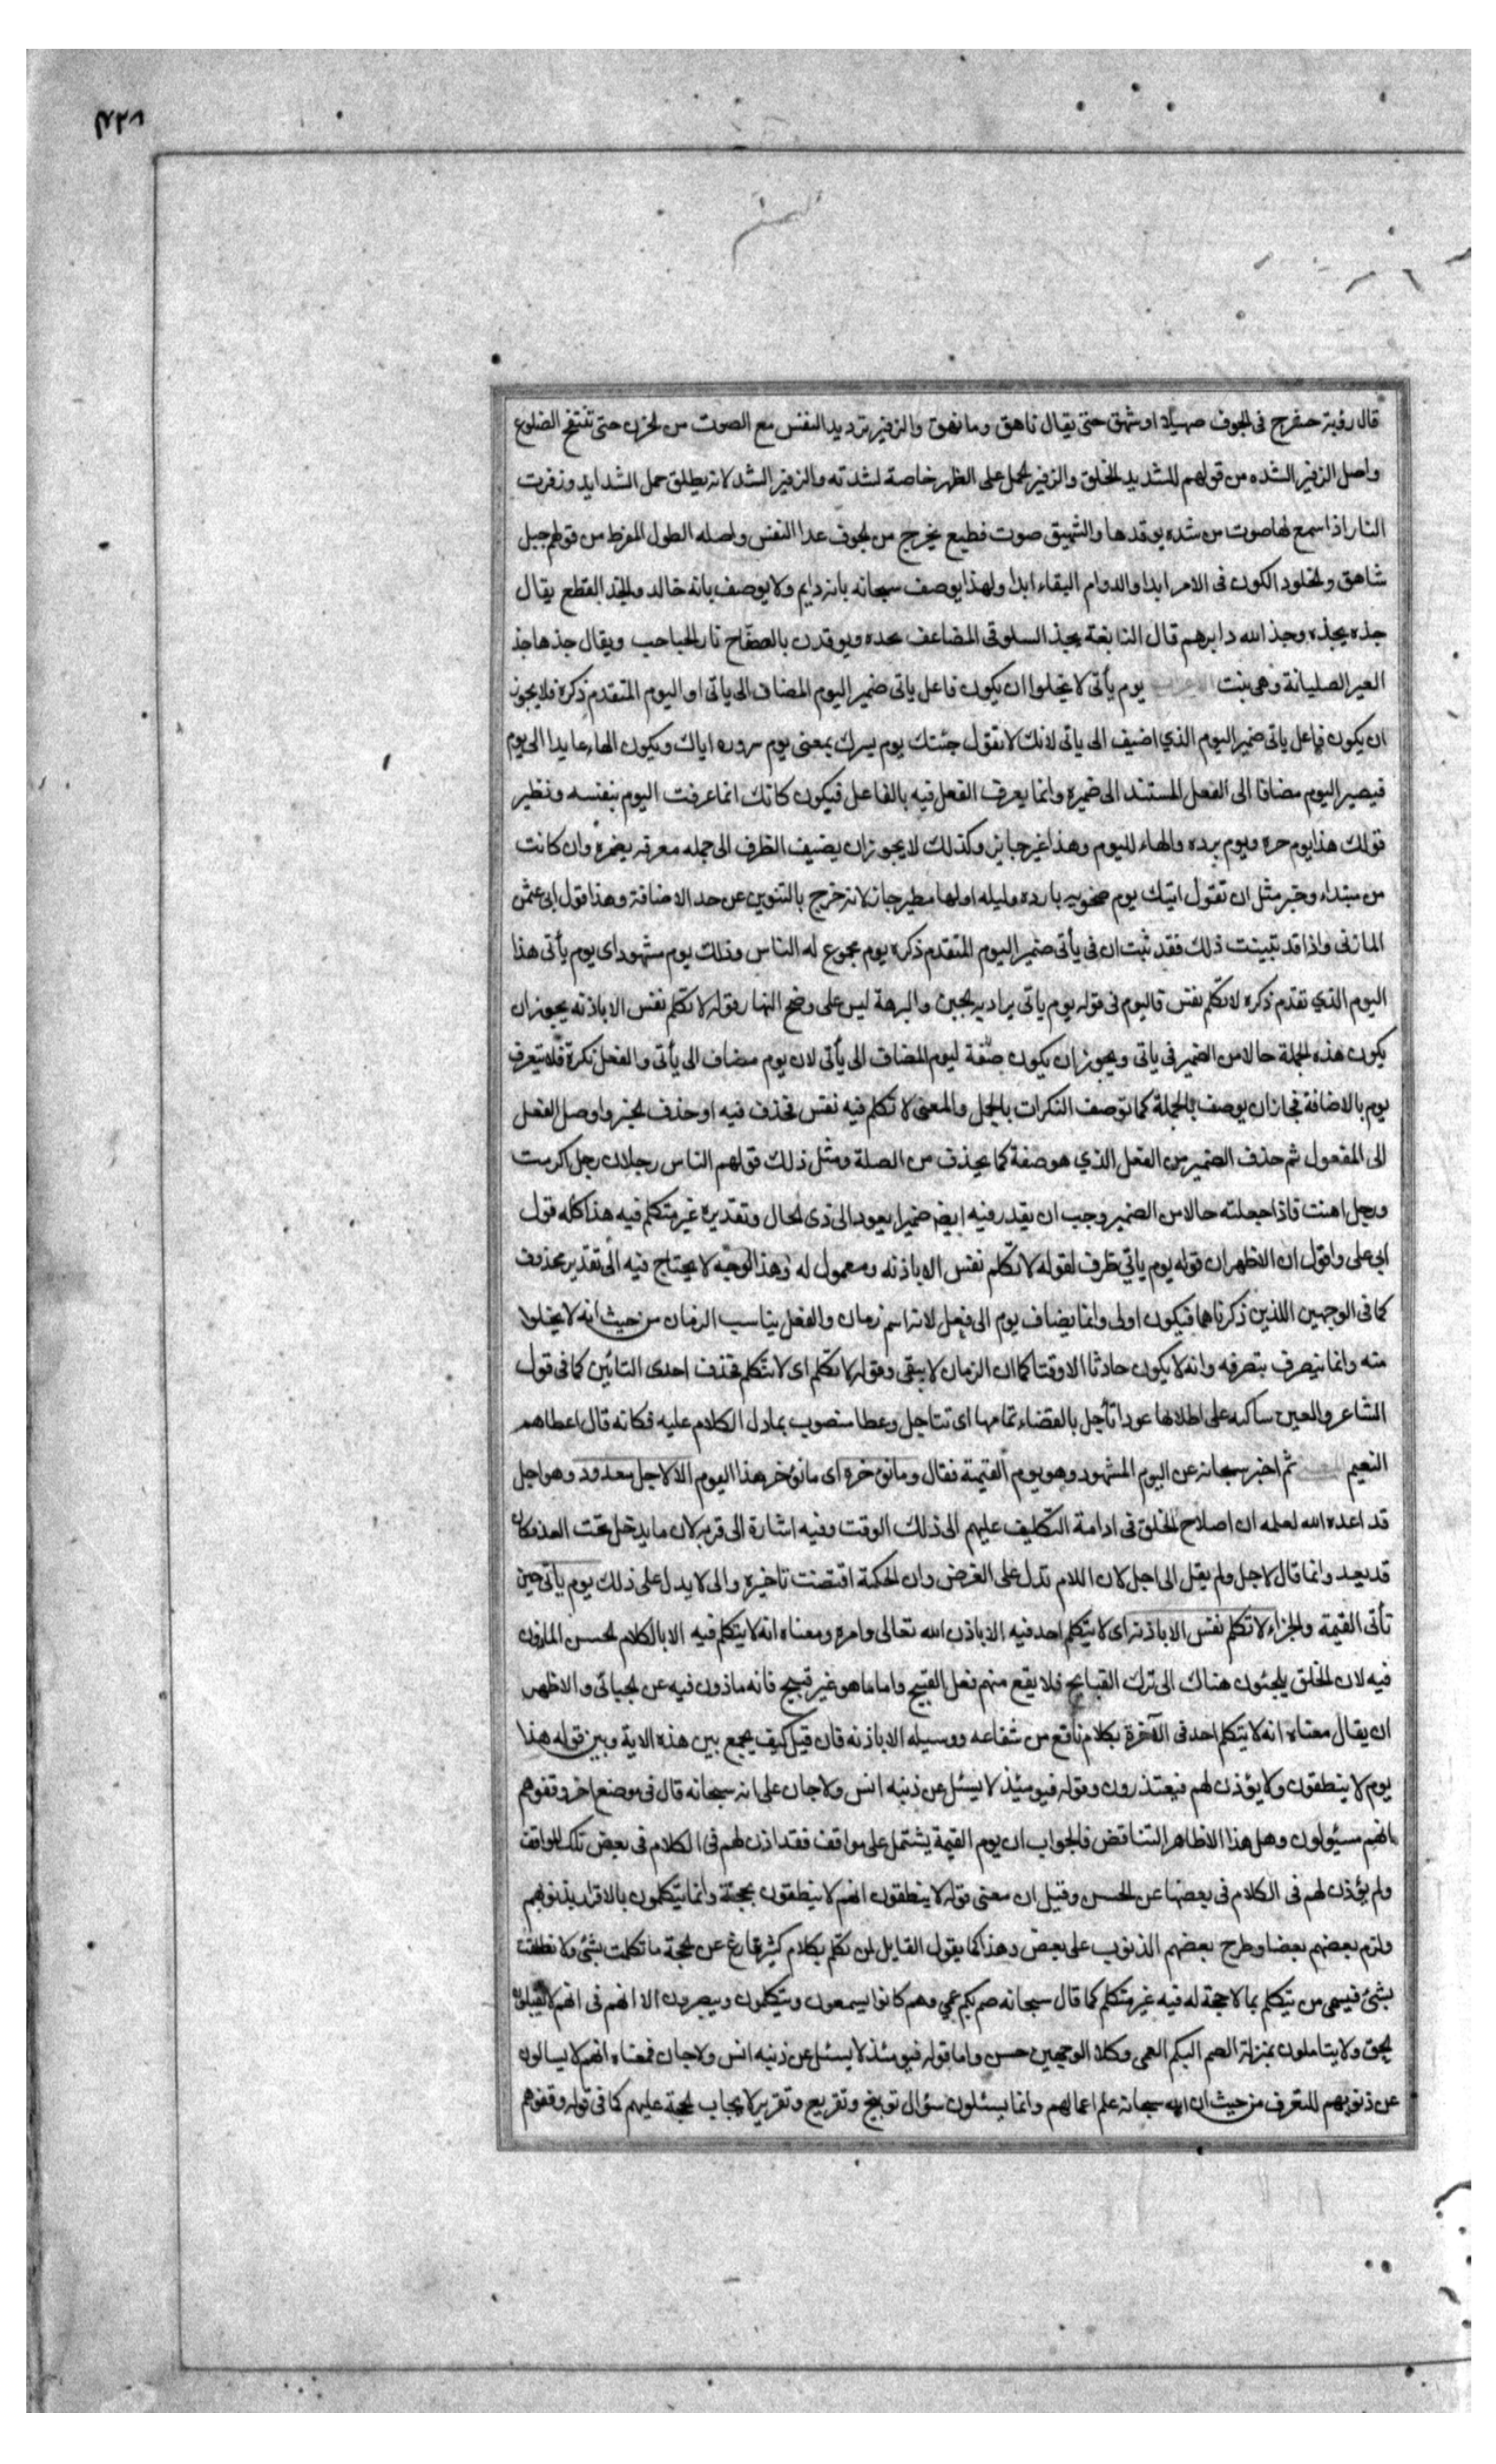 ٧٢٨
قال رؤبة حشرج فى الجوف صهيلا او شهق حتى يقال ناهق وما نهق والزفير ترديد النفس مع الصوت من الحزن حتى تنتفخ الضلوع
واصل الزفير الشده من قولهم للشديد الخلق والزفير الحمل على الظهر خاصة لشدته والزفير الشد لانه يطلق حمل الشدايد وزفرت
النار اذا سمع لها صوت من شده توقدها والشهيق صوت فظيع يخرج من الجوف عدا النفس واصله الطول المفرط من قولهم جبل
شاهق والخلود الكون فى الامر ابدا والدوام البقاء ابدا ولهذا يوصف سبحانه بانه دايم ولا يوصف بانه خالد والجذ القطع يقال
جذه يجذه وجذ الله دابرهم قال النابغة يجذ السلوقى المضاعف ويوقدن بالصفاح نار الحباحب ويقال جذها جذ
العير الصليانة وهى بنت يوم يأتى لا يخلوا ان يكون فاعل ياتى ضمير اليوم المضاف الى ياتى او اليوم المتقدم ذكره فلا يجوز
ان يكون فاعل ياتى ضمير اليوم الذي اضيف الى ياتى لانك لا تقول جئتك يوم يسرك بمعنى يوم سروره اياك ويكون الهاء عايدا الى يوم
فيصير اليوم مضافا الى الفعل المستند الى ضميره وانما يعرف الفعل فيه بالفاعل فيكون كانك انما عرفت اليوم بنفسه ونظير
قولك هذا يوم حره ويوم برده والهاء لليوم وهذا غير جايز وكذلك لا يجوز ان يضيف الظرف الى جمله معرفه وان كانت
من مبتداء وخبر مثل ان تقول اتيك يوم بارده وليله اولها مطير جاز لانه خرج بالتنوين عن حد الاضافة وهذا قول ابى عثمن
المازنى واذا قد تبينت ذلك فقد ثبت ان فى يأتى ضمير اليوم المتقدم ذكره يوم مجموع له الناس وذلك يوم مشهود اى يوم يأتى هذا
اليوم الذي تقدم ذكره لا تكلم نفس فاليوم فى قوله يوم ياتى يراد به الحين والبرهة ليس على وضح النهار وقوله لا تكلم نفس الا باذنه يجوز ان
يكون هذه الجملة حالا من الضمير فى ياتى ويجوز ان يكون صفة ليوم المضاف الى يأتى لان يوم مضاف الى يأتى والفعل نكرة فلا يتعرف
يوم بالاضافة فجاز ان يوصف بالجملة كما توصف النكرات بالجمل والمعنى لا تكلم فيه نفس فحذف فيه او حذف الحرف واوصل الفعل
الى المفعول ثم حذف الضمير من الفعل الذي هو صفة كما يحذف من الصلة ومثل ذلك قولهم الناس رجلان رجل اكرمت
ورجل اهنت فاذا جعلته حالا من الضمير وجب ان يقدر فيه ايضا ضميرا يعود الى ذى الحال وتقديره غير متكلم فيه هذا كله قول
ابى على واقول ان الاظهر ان قوله يوم ياتي ظرف لقوله لا تكلم نفس الا باذنه ومعمول له وهذا الوجه لا يحتاج فيه الى تقدير محذوف
كما فى الوجهين اللذين ذكرناهما فيكون اولى وانما يضاف يوم الى فعل لانه اسم زمان والفعل يناسب الزمان من حيث انه لا يخلوا
منه وانما ينصرف بتصرفه وانه لا يكون حادثا الا وقتا كما ان الزمان لا يبقى وقوله لا تكلم اى لا تتكلم فحذف احدى التائين كما فى قول
الشاعر والعين ساكنه على اطلائها عوذا تأجل بالفضاء اى تتاجل وعطا منصوب بما دل الكلام عليه فكانه قال اعطاهم
النعيم ثم اخبر سبحانه عن اليوم المشهود وهو يوم القيمة فقال وما نؤخره اى ما نؤخر هذا اليوم الا لاجل معدود وهو اجل
قد اعده الله لعلمه ان اصلاح الخلق فى ادامة التكليف عليهم الى ذلك الوقت وفيه اشارة الى قربه لان ما يدخل تحت العد فكان
قد بعد وانما قال لاجل ولم يقل الى اجل لان اللام تدل على الغرض وان الحكمة اقتضت تاخيره والى لا يدل على ذلك يوم يأتى حين
تأتى القيمة والجزاء لا تكلم نفس الا باذنه اى لا يتكلم احد فيه الا باذن الله تعالى وامره ومعناه انه لا يتكلم فيه الا بالكلام الحسن الماذون
فيه لان الخلق يلجئون هناك الى ترك القبايح فلا يقع منهم فعل القبيح واما ما هو غير قبيح فانه ماذون فيه عن الجبائى والاظهر
ان يقال معناه انه لا يتكلم احد فى الآخرة بكلام نافع من شفاعه ووسيله الا باذنه فان قيل كيف يجمع بين هذه الاية وبين قوله هذا
يوم لا ينطقون ولا يؤذن لهم فيعتذرون وقوله فيومئذ لا يسئل عن ذنبه انس ولا جان على انه سبحانه قال فى موضع اخر وقفوهم
انهم مسئولون وهل هذا الا ظاهر التناقض فالجواب ان يوم القيمة يشتمل على مواقف فقد اذن لهم فى الكلام فى بعض تلك المواقف
ولم يؤذن لهم فى الكلام فى بعضها عن الحسن وقيل ان معنى قوله لا ينطقون انهم لا ينطقون بحجة وانما يتكلمون بالاقرار بذنوبهم
ولزم بعضهم بعضا وطرح بعضهم الذنوب على بعض وهذا كما يقول القايل لمن تكلم بكلام كثير فارغ عن الحجة ما تكلمت بشئ ولا نطقت
بشئ فيسمى من يتكلم بما لا حجة له فيه غير متكلم كما قال سبحانه صم بكم عمي وهم كانوا يسمعون ويتكلمون ويبصرون الا انهم فى انهم لا يقبلون
الحق ولا يتاملون بمنزلة الصم البكم العمى وكلا الوجهين حسن واما قوله فيومئذ لا يسئل عن ذنبه انس ولا جان فمعناه انهم لا يسالون
عن ذنوبهم للتعرف من حيث ان الله سبحانه علم اعمالهم وانما يسئلون سؤال توبيخ وتقريع وتقرير لايجاب الحجة عليهم كما فى قوله وقفوهم